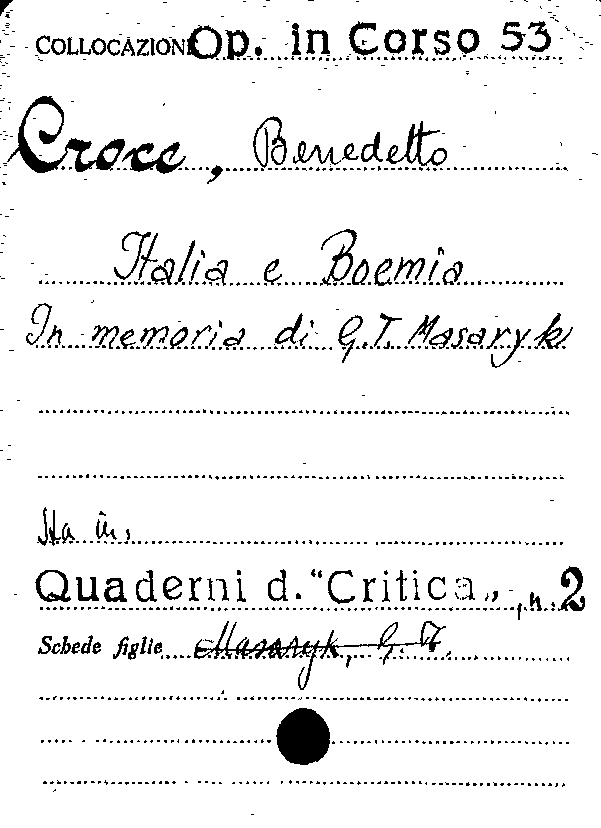 COLLOCAZIONE Op. in Corso 53
Croce, Benedetto
Italia e Boemia
In memoria di G.T. Masaryk
Sta in:
Quaderni d. "Critica", n. 2
Schede figlie Masaryk, G. T.